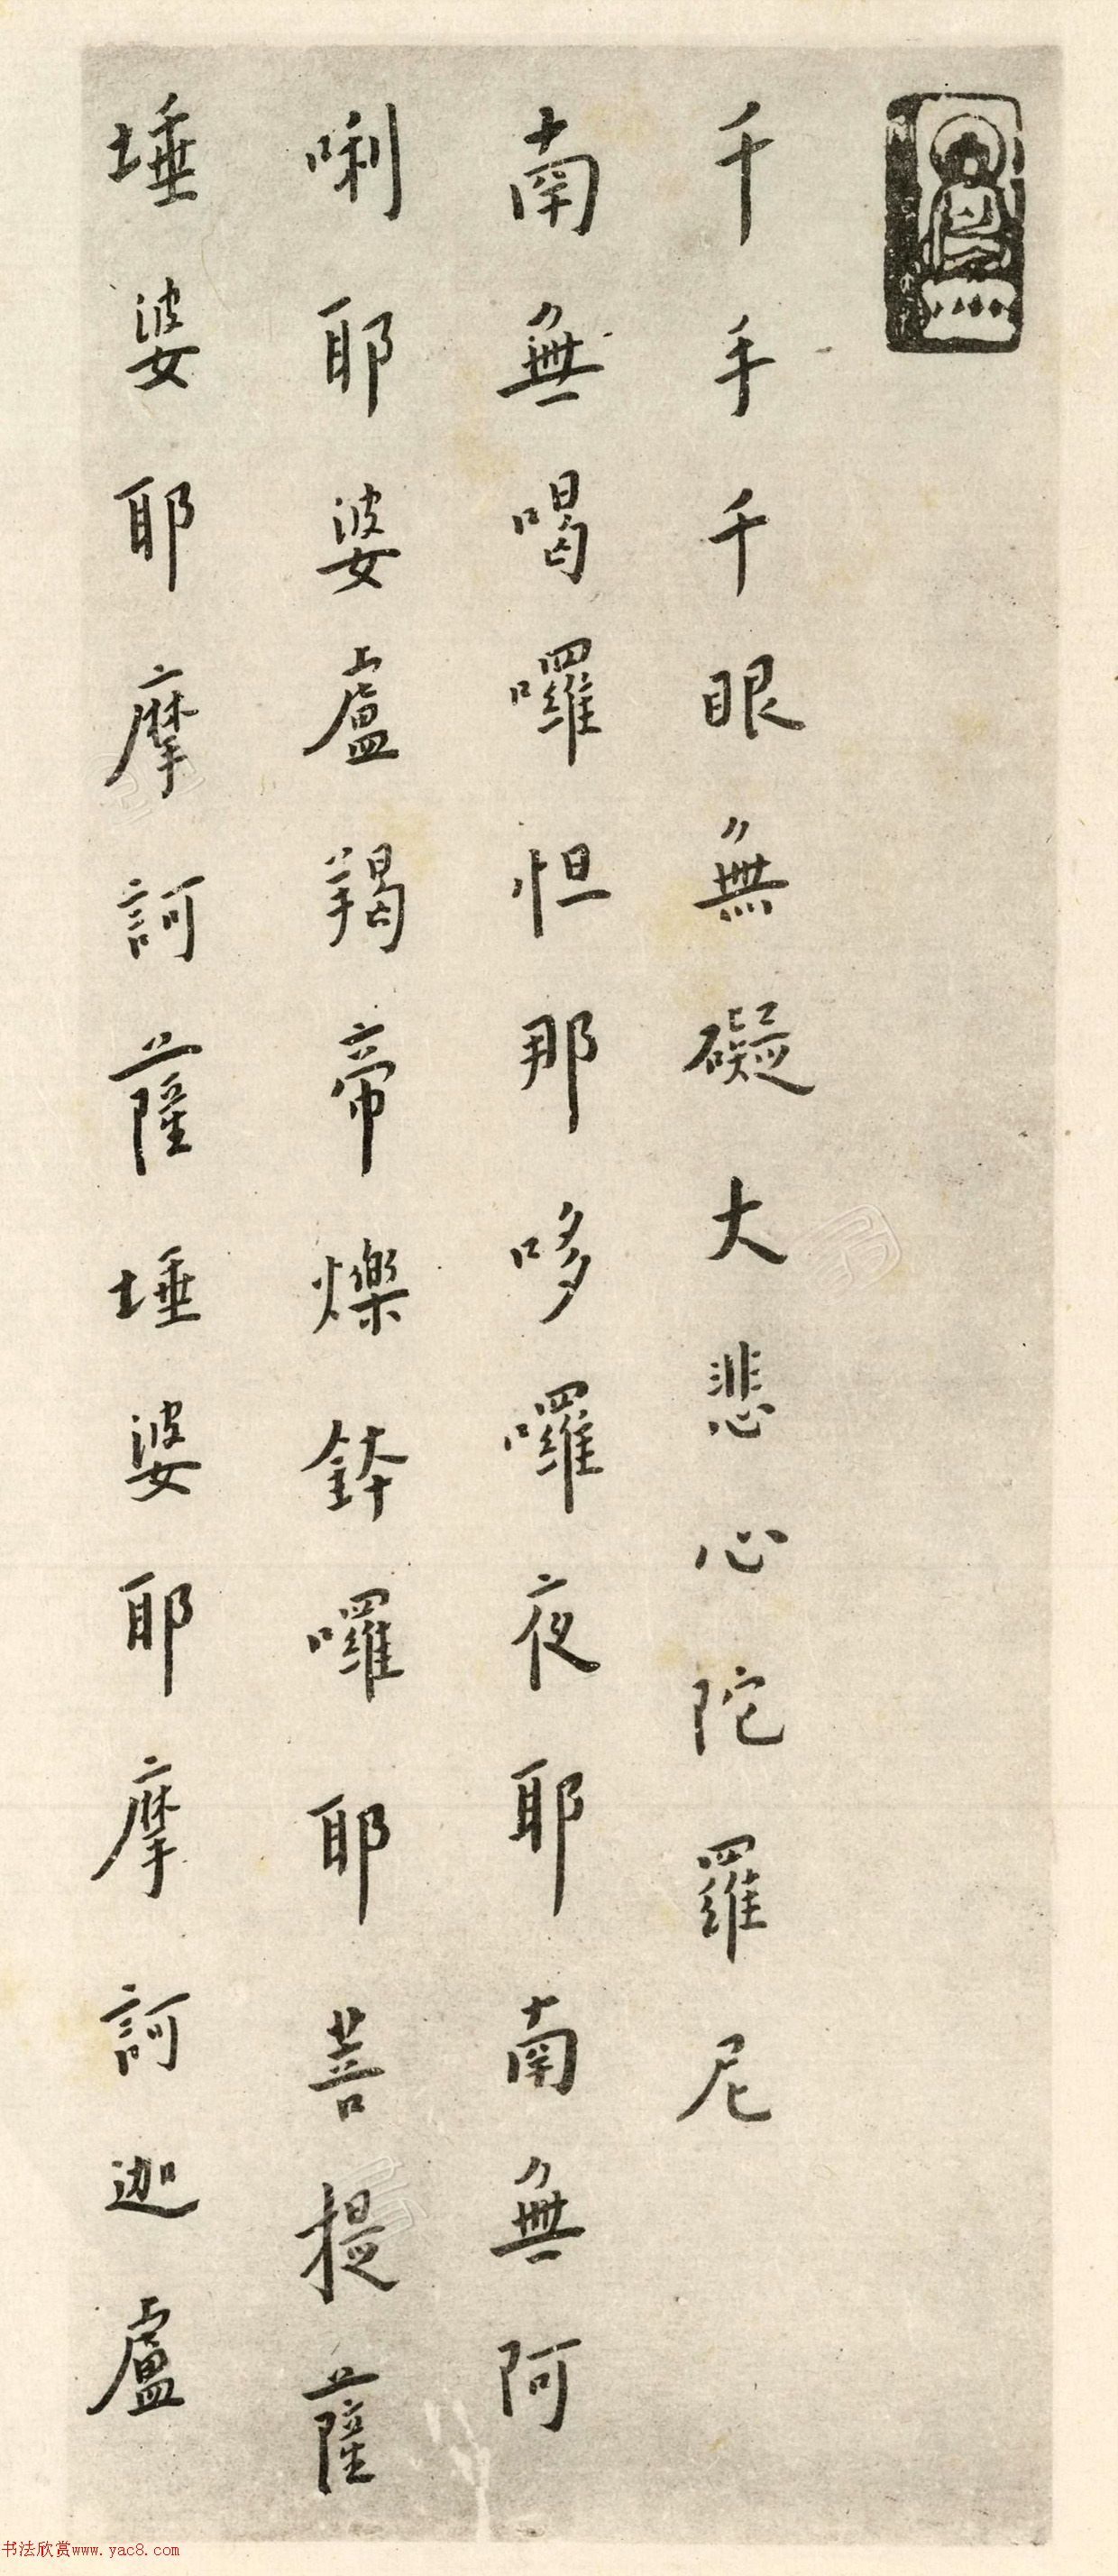 千手千眼無礙大悲心陀羅尼
南無喝囉怛那哆囉夜耶南無阿
唎耶婆盧羯帝爍鉢囉耶菩提薩
埵婆耶摩訶薩埵婆耶摩訶迦盧
书法欣赏www.yac8.com